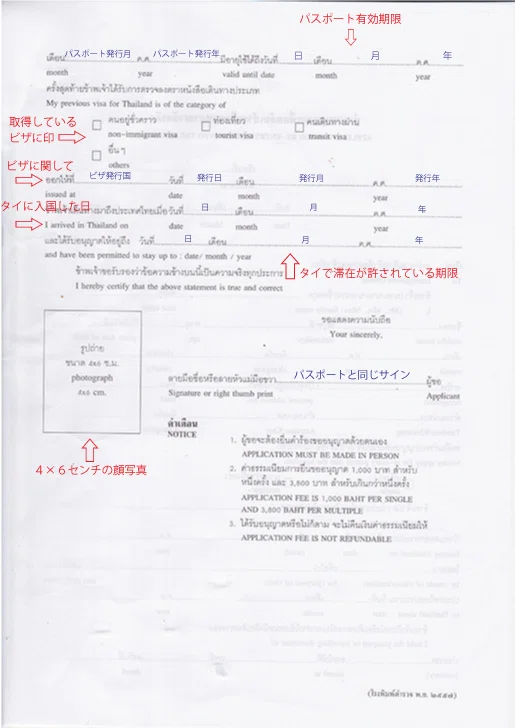 パスポート有効期限
เดือน パスポート発行月 ค.ศ. パスポート発行年 มีอายุใช้ได้ถึงวันที่ 日 เดือน 月 ค.ศ. 年
month year valid until date month year
ครั้งสุดท้ายข้าพเจ้าได้รับการตรวจลงตราหนังสือเดินทางประเภท
My previous visa for Thailand is of the category of
取得している
ビザに印
คนอยู่ชั่วคราว ท่องเที่ยว คนเดินทางผ่าน
non-immigrant visa tourist visa transit visa
อื่น ๆ
others
ビザに関して
ออกให้ที่ ビザ発行国 วันที่ 発行日 เดือน 発行月 ค.ศ. 発行年
issued at date month year
タイに入国した日
ข้าพเจ้าเดินทางมาถึงประเทศไทยเมื่อวันที่ 日 เดือน 月 ค.ศ. 年
I arrived in Thailand on date month year
และได้รับอนุญาตให้อยู่ถึง วันที่ 日 เดือน 月 ค.ศ. 年
and have been permitted to stay up to : date / month / year
タイで滞在が許されている期限
ข้าพเจ้าขอรับรองว่าข้อความข้างบนนี้เป็นความจริงทุกประการ
I hereby certify that the above statement is true and correct
ขอแสดงความนับถือ
Your sincerely,
รูปถ่าย
ขนาด ๔x๖ ซ.ม.
photograph
๔x๖ cm.
ลายมือชื่อหรือลายหัวแม่มือขวา パスポートと同じサイン ผู้ขอ
Signature or right thumb print Applicant
คำเตือน
NOTICE
4×6センチの顔写真
1. ผู้ขอจะต้องยื่นคำร้องขออนุญาตด้วยตนเอง
APPLICATION MUST BE MADE IN PERSON
2. ค่าธรรมเนียมการยื่นขออนุญาต 1,000 บาท สำหรับ
หนึ่งครั้ง และ 3,800 บาท สำหรับเกินกว่าหนึ่งครั้ง
APPLICATION FEE IS 1,000 BAHT PER SINGLE
AND 3,800 BAHT PER MULTIPLE
3. ได้รับอนุญาตหรือไม่ก็ตาม จะไม่คืนเงินค่าธรรมเนียมให้
APPLICATION FEE IS NOT REFUNDABLE
(โรงพิมพ์ตำรวจ พ.ย. ๒๕๕๗)